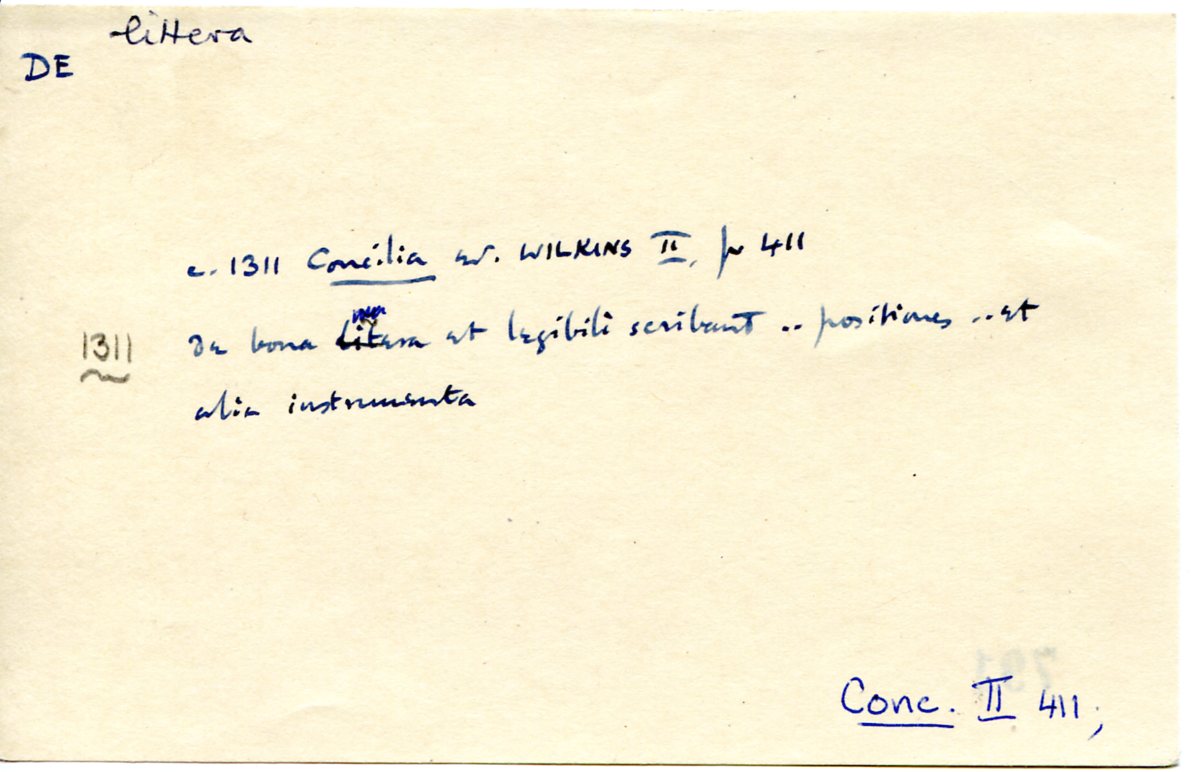 littera
DE
c. 1311 Concilia ed. WILKINS II, p 411
1311
De bona litera et legibili scribant .. positiones .. et
alia instrumenta
Conc. II 411;